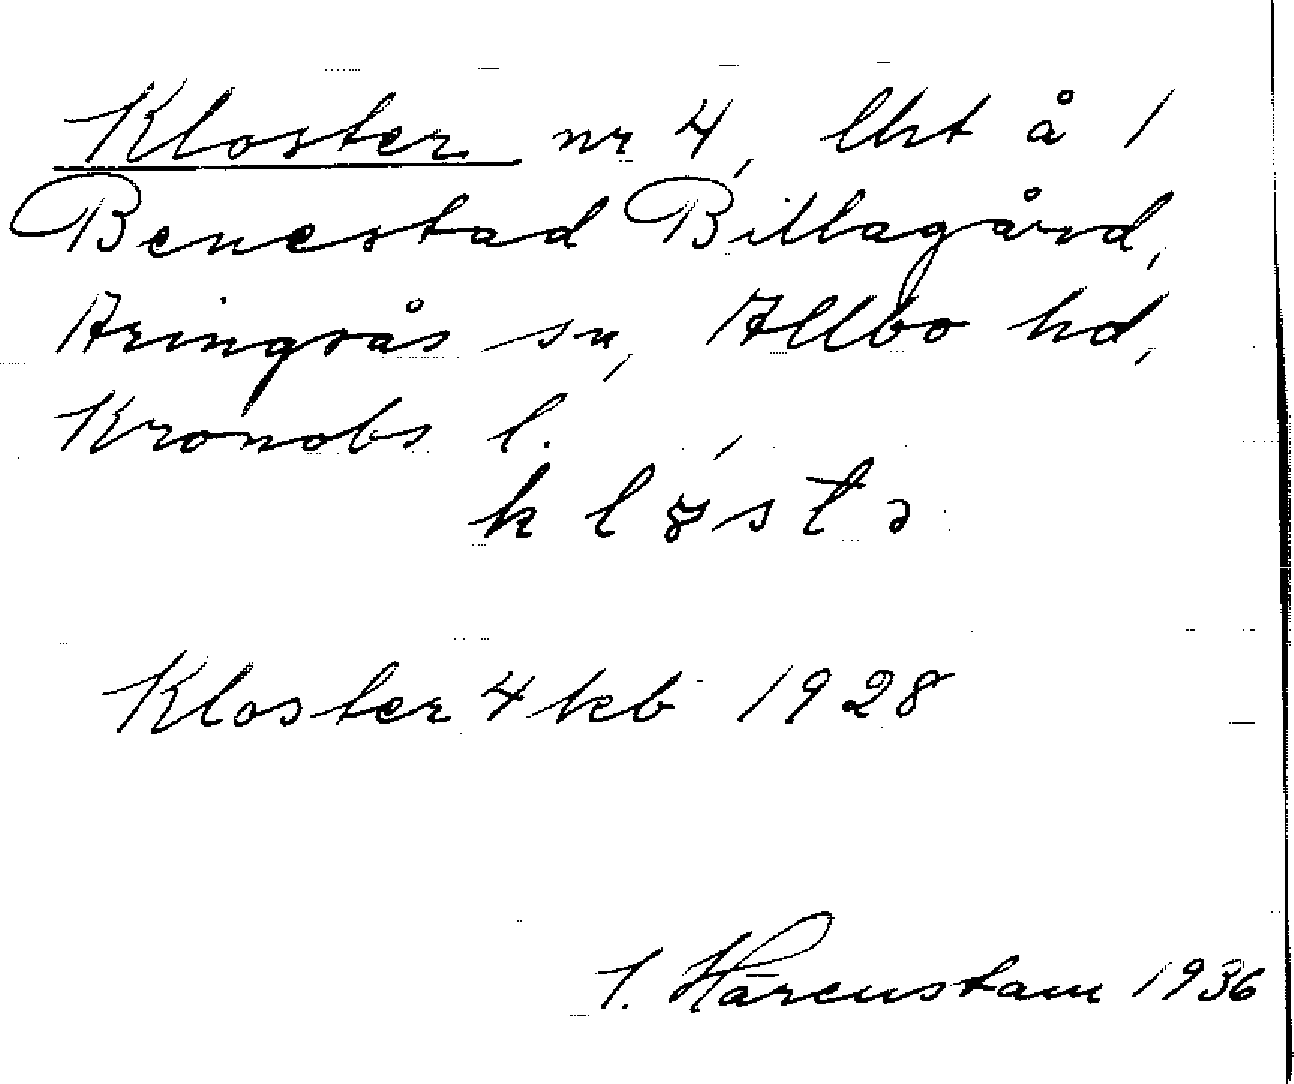 Kloster nr 4, lht å 1
Benestad Billagård,
Aringsås sn, Allbo hd,
Kronobs l.
Kloster 4 kb 1928
Härenstam 1936